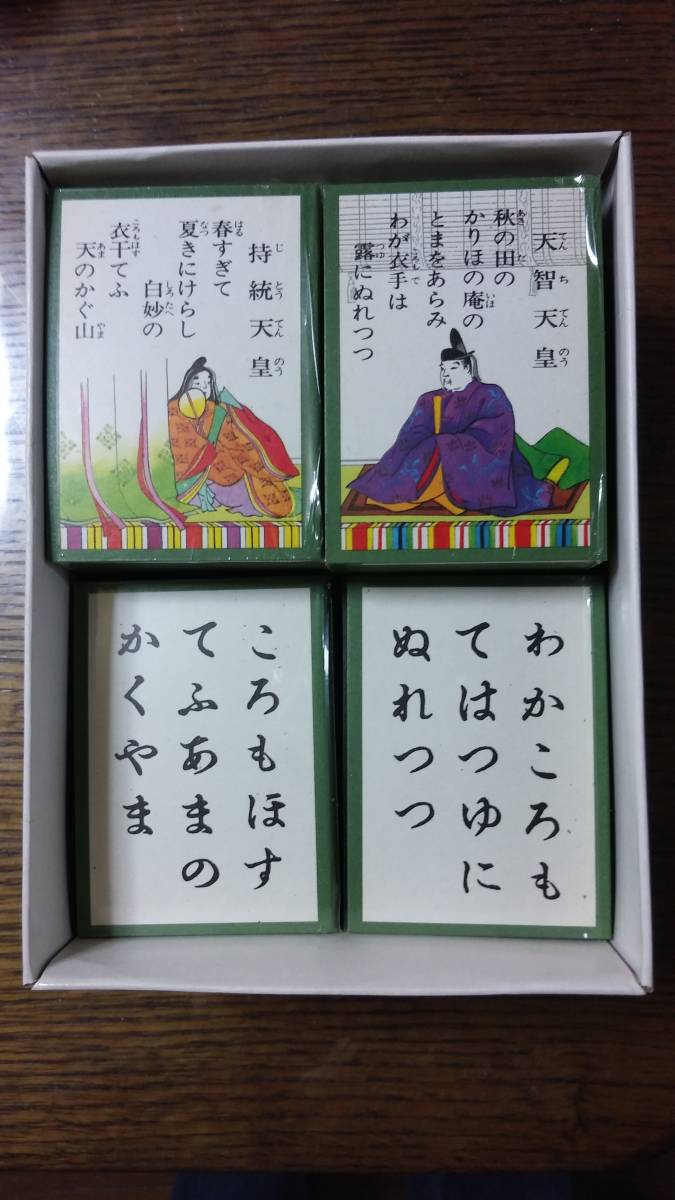 天智天皇
秋の田の
かりほの庵の
とまをあらみ
わが衣手は
露にぬれつつ
持統天皇
春すぎて
夏きにけらし
白妙の
衣干てふ
天のかぐ山
わかころも
てはつゆに
ぬれつつ
ころもほす
てふあまの
かくやま